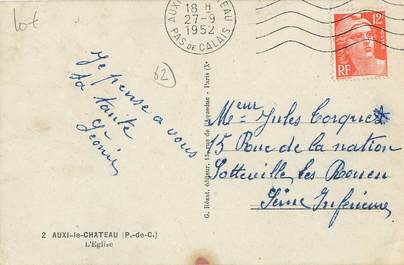 lot
AUXI-LE-CHATEAU
18 H
27-9
1952
PAS DE CALAIS
12
RF
62
Je pense a vous
ta tante
Léonie
Meur Jules
15 Rue de la nation
Sotteville les Rouen
Seine Inferieure
G. Réant, éditeur, 15, rue de Paris (Xe
2 AUXI-le-CHATEAU (P.-de-C.)
L'Eglise